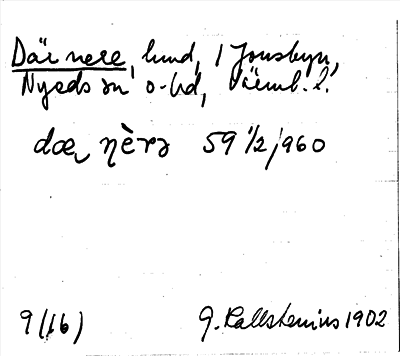 Där nere, lund, 1 Jonsbyn,
Nyeds sn o. hd, Värml. l.
dæ nὲrə 59 1/2, 960
9 (16) G. Kallstenius 1902